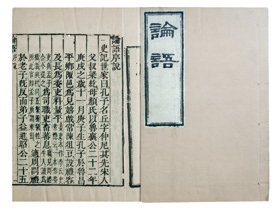 論語
論語序說
史記世家曰孔子名丘字仲尼其先宋人
父叔梁紇母顏氏以魯襄公二十二年
庚戌之歲十一月庚子生孔子於魯昌
平鄉陬邑為兒嬉戲常陳俎豆設禮容
及長為委吏料量平
為司職吏畜蕃息適周問禮
於老子既反而弟子益進昭公二十五